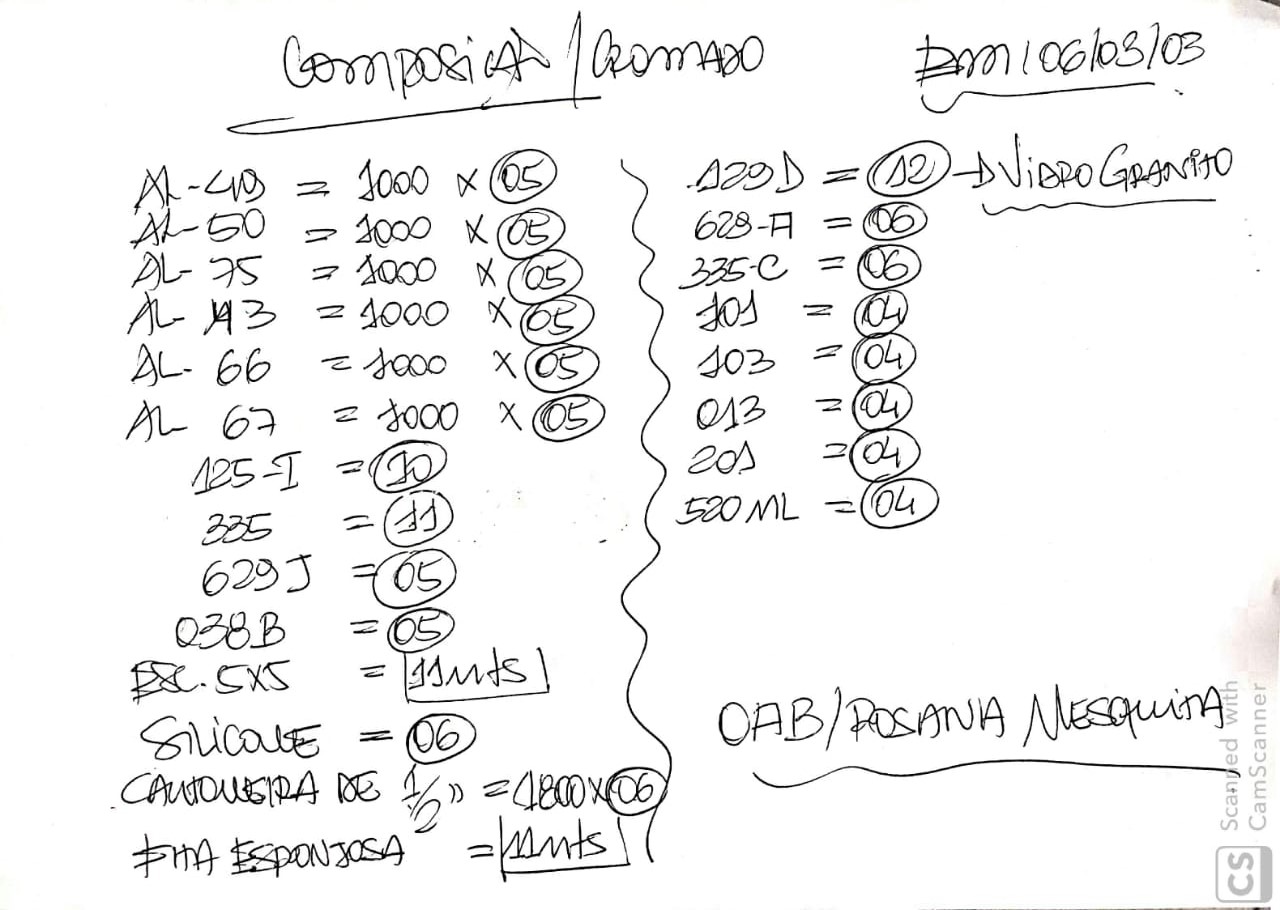 Composição/Cromado
DM 106/03/03
AL-49 = 1000 x 05
AL-50 = 1000 x 05
AL-75 = 1000 x 05
AL- 13 = 1000 x 05
AL- 66 = 1000 x 05
AL 67 = 1000 x 05
125-I = 10
335 = 11
629 J = 05
038B = 05
ESC. 5x5 = 11mts
SILICONE = 06
CANTONEIRA DE 1/2" = 1800x06
FITA ESPONJOSA = 11mts
129 D = 12 → VIDRO GRANITO
628-A = 06
335-C = 06
101 = 04
103 = 04
013 = 04
201 = 04
520 ML = 04
OAB/ROSANIA MESQUITA
Scanned with
CamScanner
CS